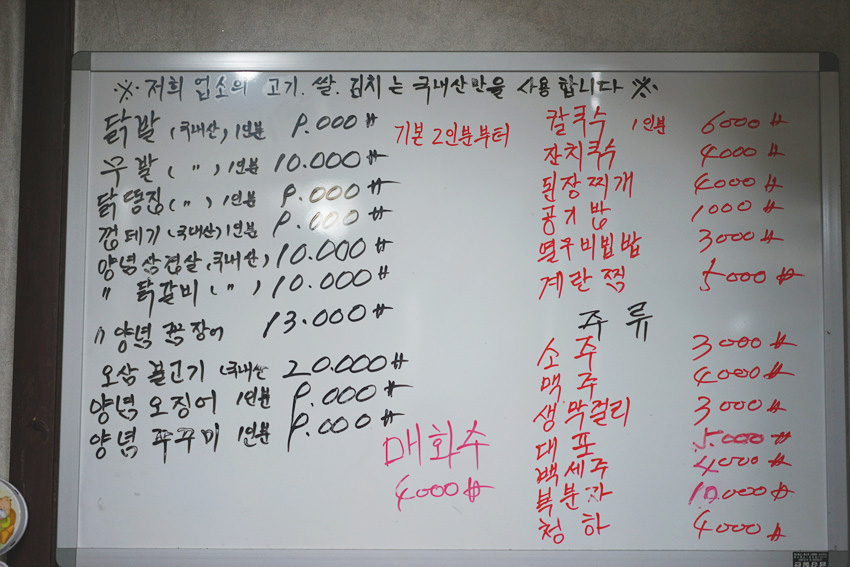 ※ 저희 업소의 고기. 쌀. 김치는 국내산만을 사용합니다 ※
닭발 (국내산) 1인분 9.000₩
무발 ( 〃 ) 1인분 10.000₩
닭똥집 ( 〃 ) 1인분 9.000₩
껍데기 (국내산) 1인분 9.000₩
양념삼겹살 (국내산) 10.000₩
〃 닭갈비 ( 〃 ) 10.000₩
〃 양념 꼼장어 13.000₩
오삼 불고기 (국내산 20.000₩
양념 오징어 1인분 9.000₩
양념 쭈꾸미 1인분 9.000₩
기본 2인분부터
매화수
4000₩
칼국수 1인분 6000₩
잔치국수 4000₩
된장찌개 4000₩
공기밥 1000₩
열무비빔밥 3000₩
계란찍 5000₩
주류
소주 3000₩
맥주 4000₩
생막걸리 3000₩
대포 5000₩
백세주 4000₩
복분자 10.000₩
청하 4000₩